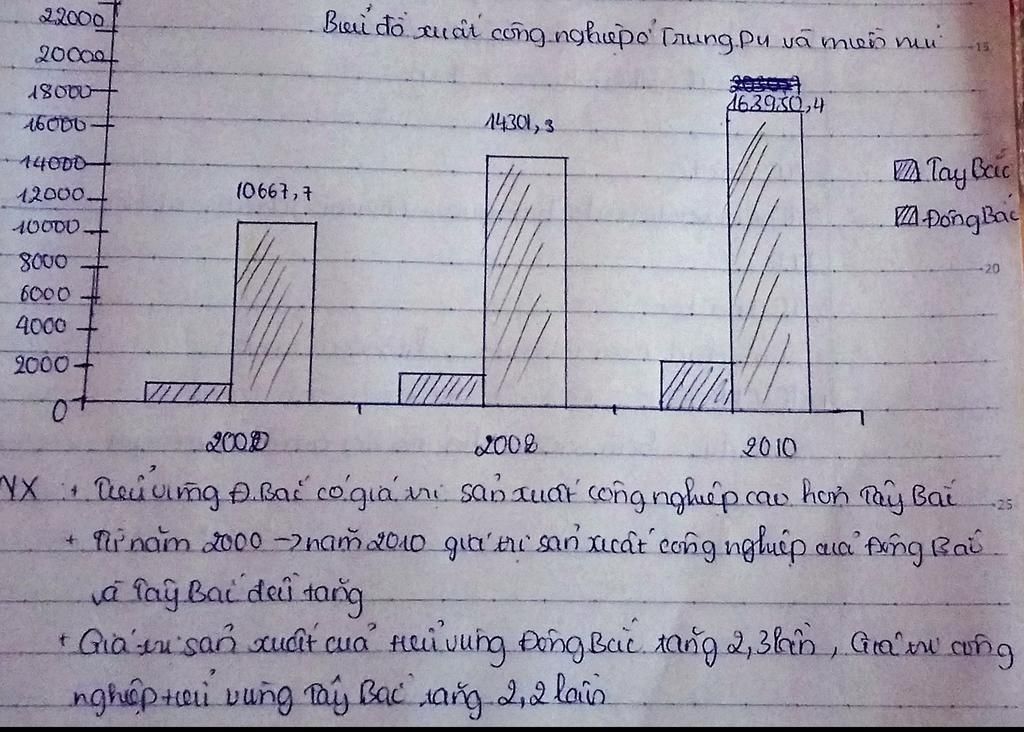 Biểu đồ xuất công nghiệp ở Trung Du và miền núi
22000
20000
18000
16000
14000
12000
10000
8000
6000
4000
2000
0
10667,7
14301,3
163950,4
Tây Bắc
Đông Bắc
15
20
2002
2008
2010
NX : + Tiểu vùng Đ.Bắc có giá trị sản xuất công nghiệp cao hơn Tây Bắc
25
+ Từ năm 2000 -> năm 2010 giá trị sản xuất công nghiệp của Đông Bắc
và Tây Bắc đều tăng
+ Giá trị sản xuất của tiểu vùng Đông Bắc tăng 2,3 lần, Giá trị công
nghiệp tiểu vùng Tây Bắc tăng 2,2 lần